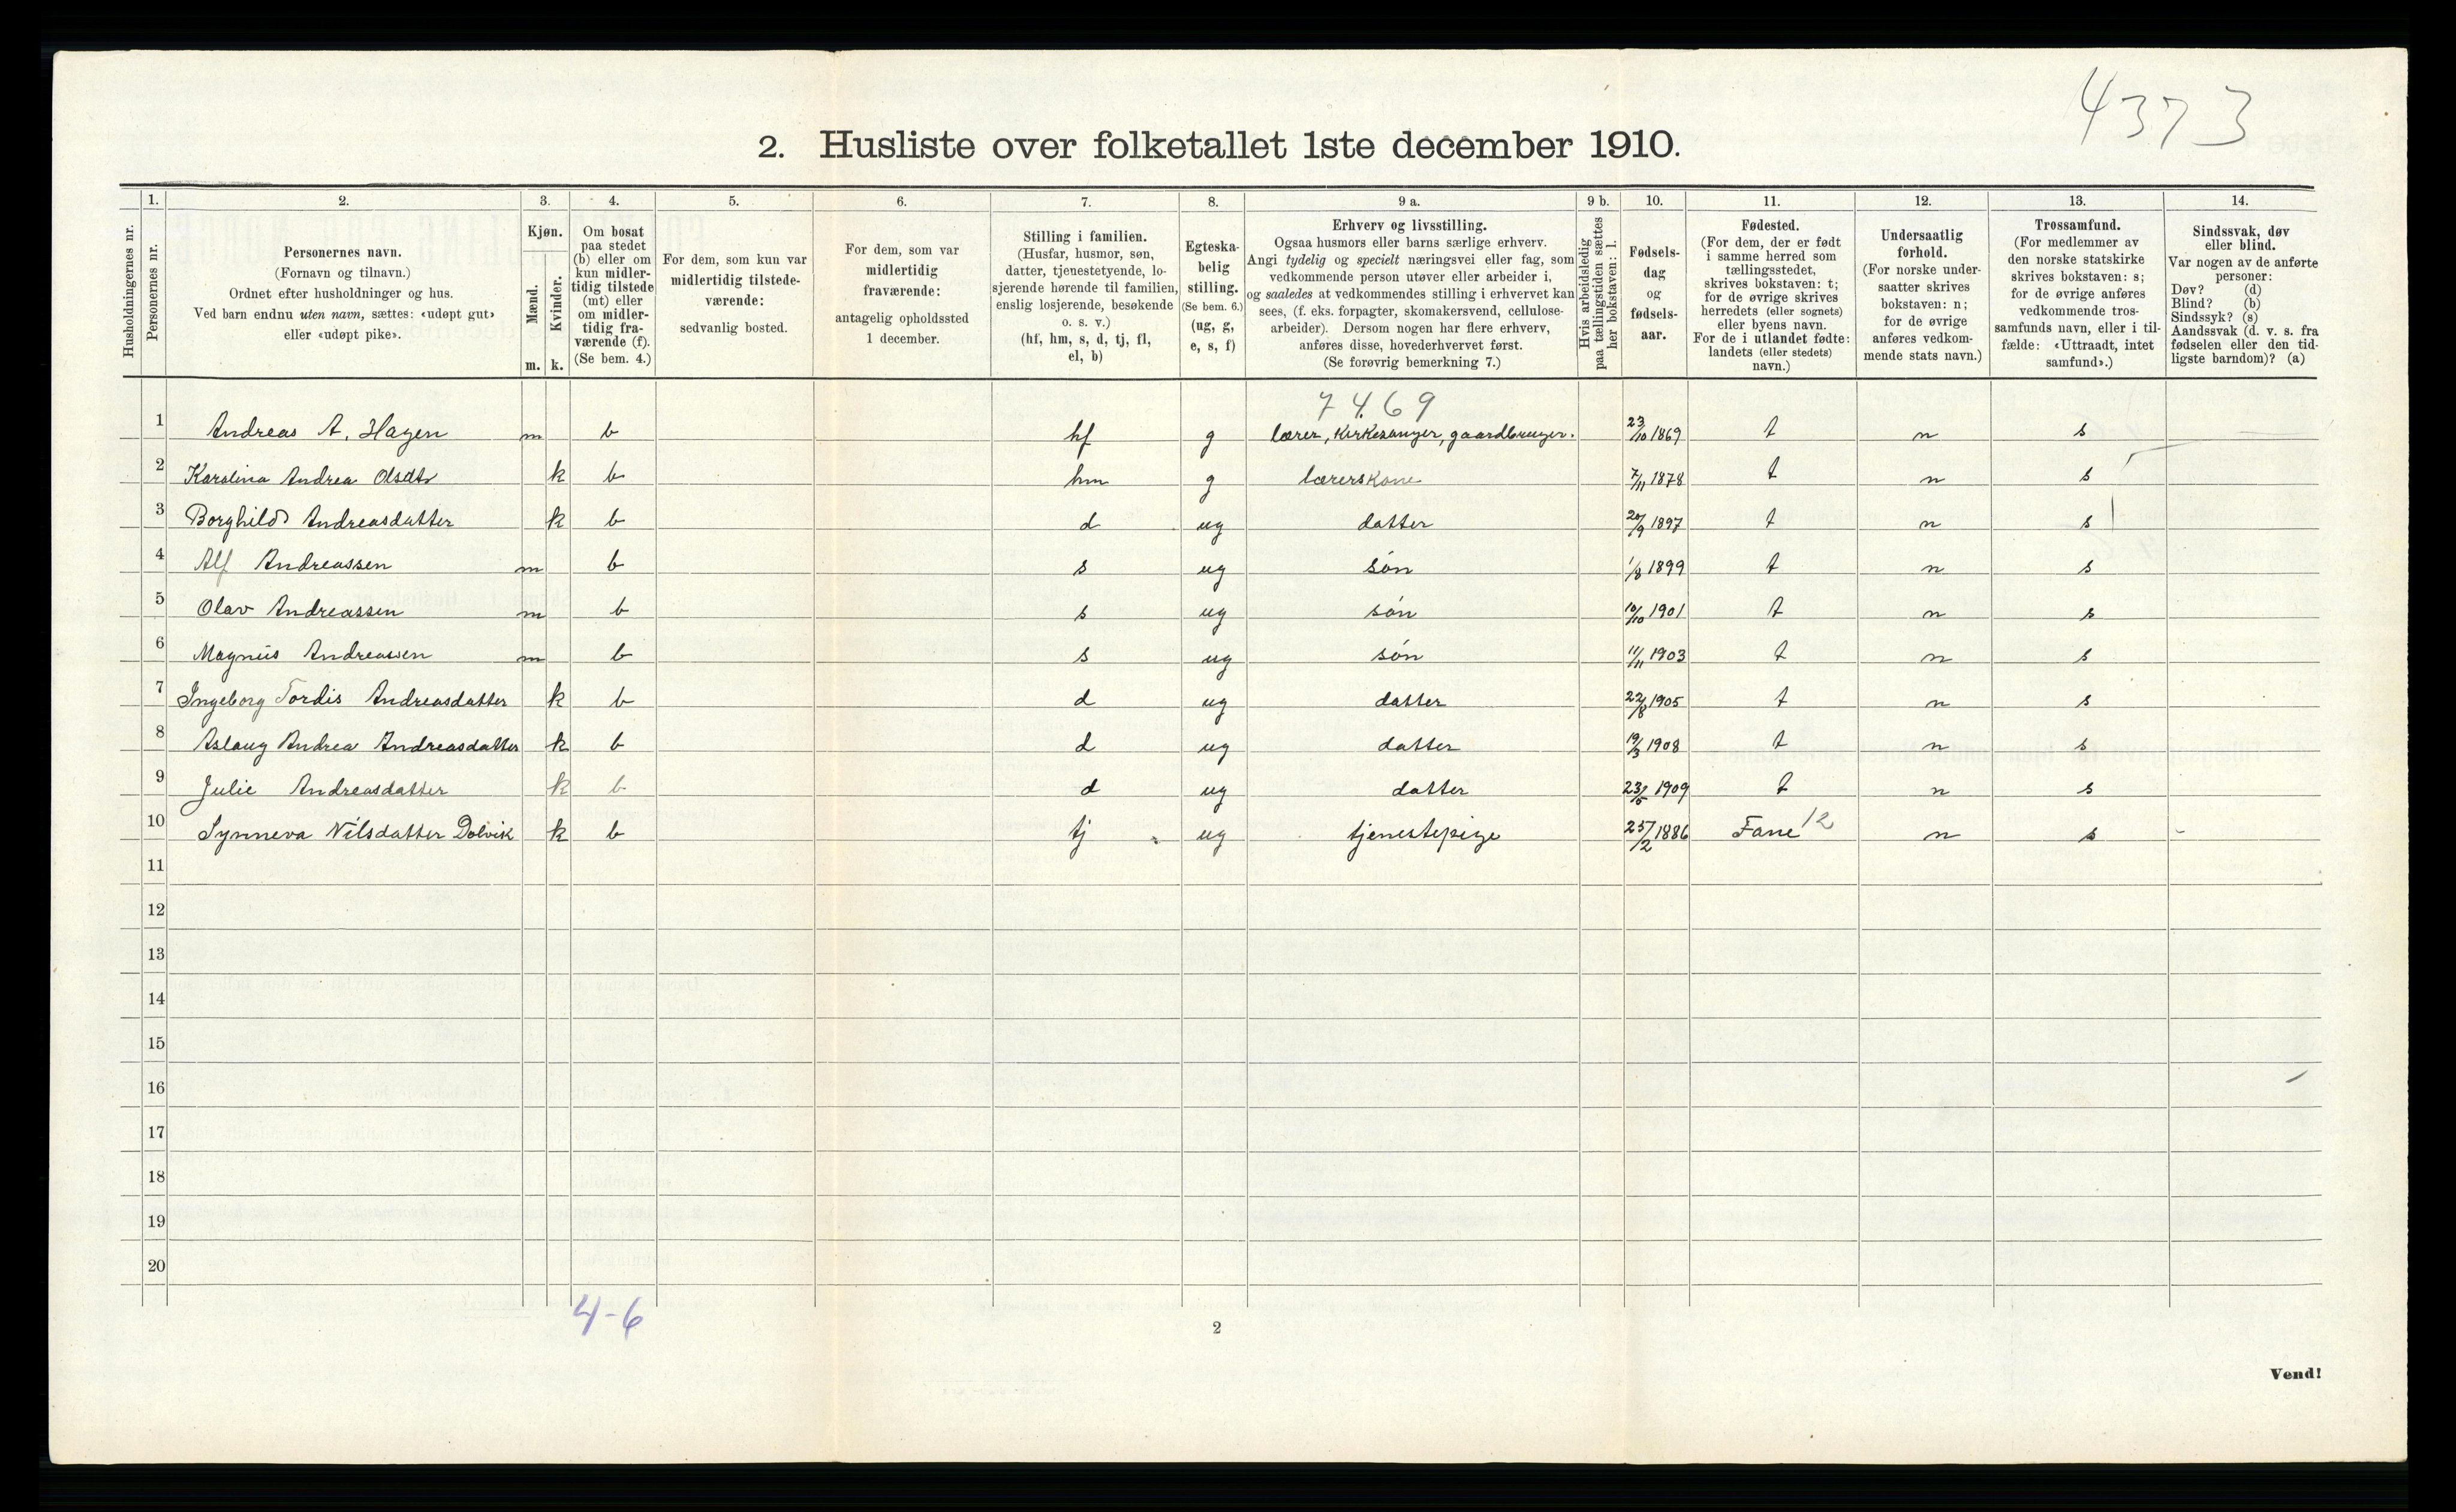 4373
2. Husliste over folketallet 1ste december 1910.
Husholdningernes nr.
1. Personernes nr.
2. Personernes navn. (Fornavn og tilnavn.) Ordnet efter husholdninger og hus. Ved barn endnu uten navn, sættes: «udøpt gut» eller «udøpt pike».
3. Kjøn. Mænd. m. Kvinder. k.
4. Om bosat paa stedet (b) eller om kun midlertidig tilstede (mt) eller om midlertidig fraværende (f). (Se bem. 4.)
5. For dem, som kun var midlertidig tilstedeværende: sedvanlig bosted.
6. For dem, som var midlertidig fraværende: antagelig opholdssted 1 december.
7. Stilling i familien. (Husfar, husmor, søn, datter, tjenestetyende, losjerende hørende til familien, enslig losjerende, besøkende o. s. v.) (hf, hm, s, d, tj, fl, el, b)
8. Egteskabelig stilling. (Se bem. 6.) (ug, g, e, s, f)
9 a. Erhverv og livsstilling. Ogsaa husmors eller barns særlige erhverv. Angi tydelig og specielt næringsvei eller fag, som vedkommende person utøver eller arbeider i, og saaledes at vedkommendes stilling i erhvervet kan sees, (f. eks. forpagter, skomakersvend, cellulosearbeider). Dersom nogen har flere erhverv, anføres disse, hovederhvervet først. (Se forøvrig bemerkning 7.)
9 b. Hvis arbeidsledig paa tællingstiden sættes her bokstaven: l.
10. Fødselsdag og fødselsaar.
11. Fødested. (For dem, der er født i samme herred som tællingsstedet, skrives bokstaven: t; for de øvrige skrives herredets (eller sognets) eller byens navn. For de i utlandet fødte: landets (eller stedets) navn.)
12. Undersaatlig forhold. (For norske undersaatter skrives bokstaven: n; for de øvrige anføres vedkommende stats navn.)
13. Trossamfund. (For medlemmer av den norske statskirke skrives bokstaven: s; for de øvrige anføres vedkommende trossamfunds navn, eller i tilfælde: «Uttraadt, intet samfund».)
14. Sindssvak, døv eller blind. Var nogen av de anførte personer: Døv? (d) Blind? (b) Sindssyk? (s) Aandssvak (d. v. s. fra fødselen eller den tidligste barndom)? (a)
7469
1 Andreas A. Hagen m b hf g lærer, kirkesanger, gaardbruger. 23/10 1869 t n s
2 Karolina Andrea Olsdtr k b hm g lærerskone 7/11 1878 t n s
3 Borghild Andreasdatter k b d ug datter 20/9 1897 t n s
4 Alf Andreassen m b s ug søn 1/8 1899 t n s
5 Olav Andreassen m b s ug søn 10/10 1901 t n s
6 Magnus Andreassen m b s ug søn 11/11 1903 t n s
7 Ingeborg Tordis Andreasdatter k b d ug datter 22/8 1905 t n s
8 Aslaug Andrea Andreasdatter k b d ug datter 19/3 1908 t n s
9 Julie Andreasdatter k b d ug datter 23/5 1909 t n s
10 Synneva Nilsdatter Dolvik k b tj ug tjenestepige 25/2 1886 Fane 12 n s -
11
12
13
14
15
16
17
18
19
20
4-6
2
Vend!